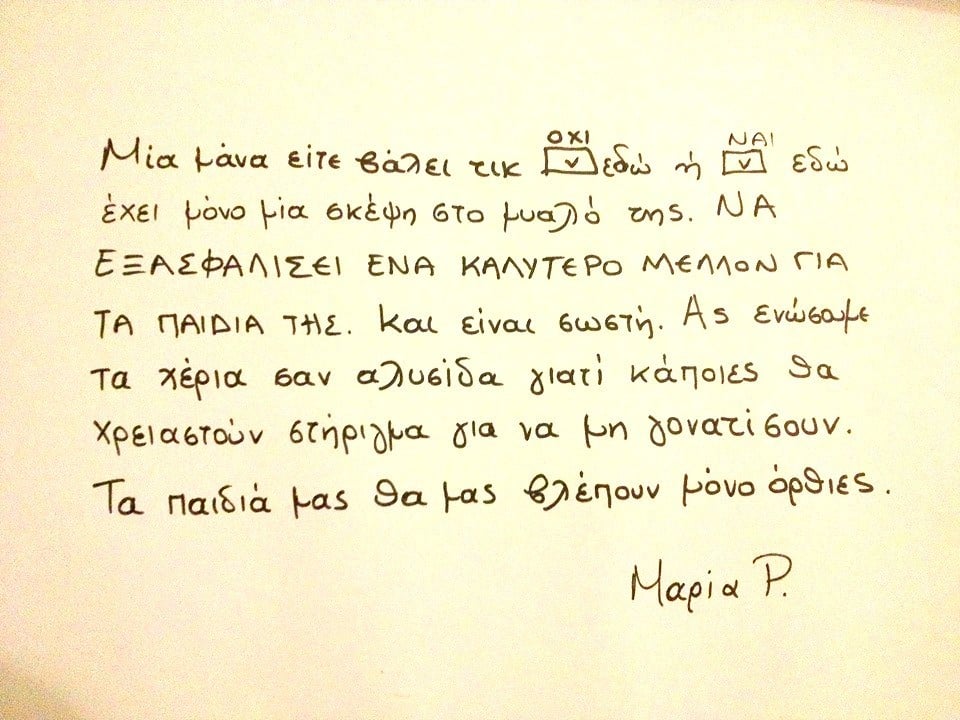 ΟΧΙ ΝΑΙ
Μία μάνα είτε βάλει τικ ☑ εδώ ή ☑ εδώ
έχει μόνο μία σκέψη στο μυαλό της. ΝΑ
ΕΞΑΣΦΑΛΙΣΕΙ ΕΝΑ ΚΑΛΥΤΕΡΟ ΜΕΛΛΟΝ ΓΙΑ
ΤΑ ΠΑΙΔΙΑ ΤΗΣ. Και είναι σωστή. Ας ενώσουμε
τα χέρια σαν αλυσίδα γιατί κάποιες θα
χρειαστούν στήριγμα για να μη γονατίσουν.
Τα παιδιά μας θα μας βλέπουν μόνο όρθιες.
Μαρία Ρ.